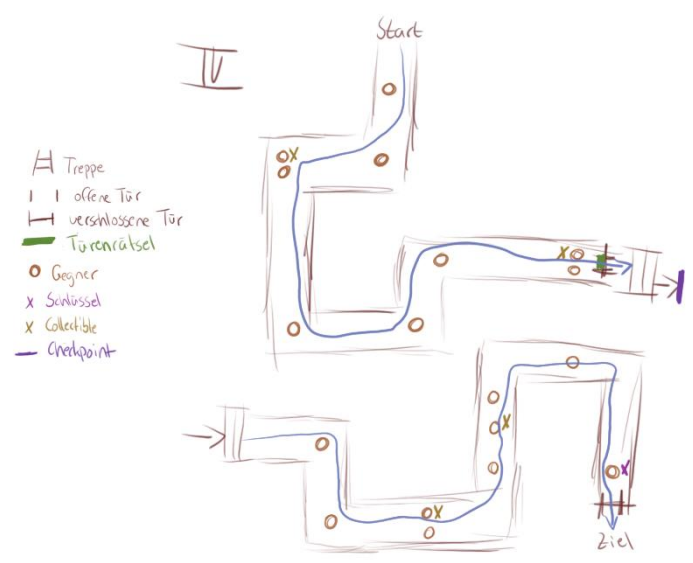 Start
IV
Treppe
offene Tür
verschlossene Tür
Türenrätsel
Gegner
x Schlüssel
x Collectible
Checkpoint
Ziel